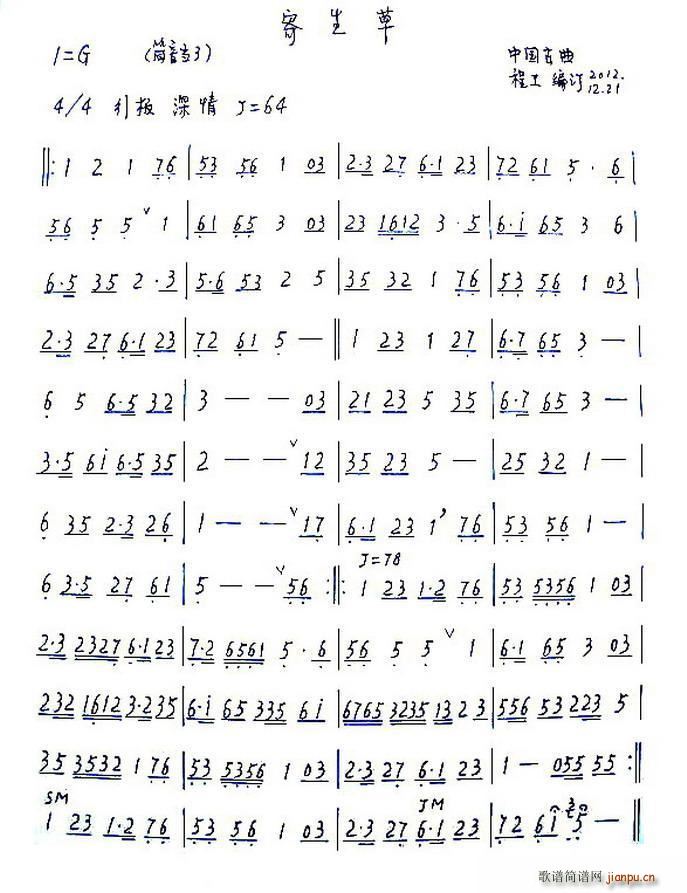 寄生草
1=G （筒音当3） 中国古曲
4/4 引板 深情 J=64 程工 编订 2012.12.21
‖: 1 2 1 76 | 53 56 1 03 | 2·3 27 6·1 23 | 72 61 5 · 6 |
56 5 5 ∨ 1 | 61 65 3 03 | 23 1612 3 · 5 | 6·i 65 3 6 |
6·5 35 2 · 3 | 5·6 53 2 5 | 35 32 1 76 | 53 56 1 03 |
2·3 27 6·1 23 | 72 61 5 — ‖ 1 23 1 27 | 6·7 65 3 — |
6 5 6·5 32 | 3 — — 03 | 21 23 5 35 | 6·7 65 3 — |
3·5 6i 6·5 35 | 2 — — ∨ 12 | 35 23 5 — | 25 32 1 — |
6 35 2·3 26 | 1 — — ∨ 17 | 6·1 23 1 ’ 76 | 53 56 1 — |
J=78
6 3·5 27 61 | 5 — — ∨ 56 :‖: 1 23 1·2 76 | 53 5356 1 03 |
2·3 2327 6·1 23 | 7·2 6561 5 · 6 | 56 5 5 ∨ 1 | 6·1 65 3 03 |
232 1612 3·235 | 6·i 65 335 6i | 6765 3235 13 2 3 | 556 53 223 5 |
35 3532 1 76 | 53 5356 1 03 | 2·3 27 6·1 23 | 1 — 055 55 :‖
SM JM
1 23 1·2 76 | 53 56 1 03 | 2·3 27 6·1 23 | 72 6i 5 — ‖
歌谱简谱网 jianpu.cn